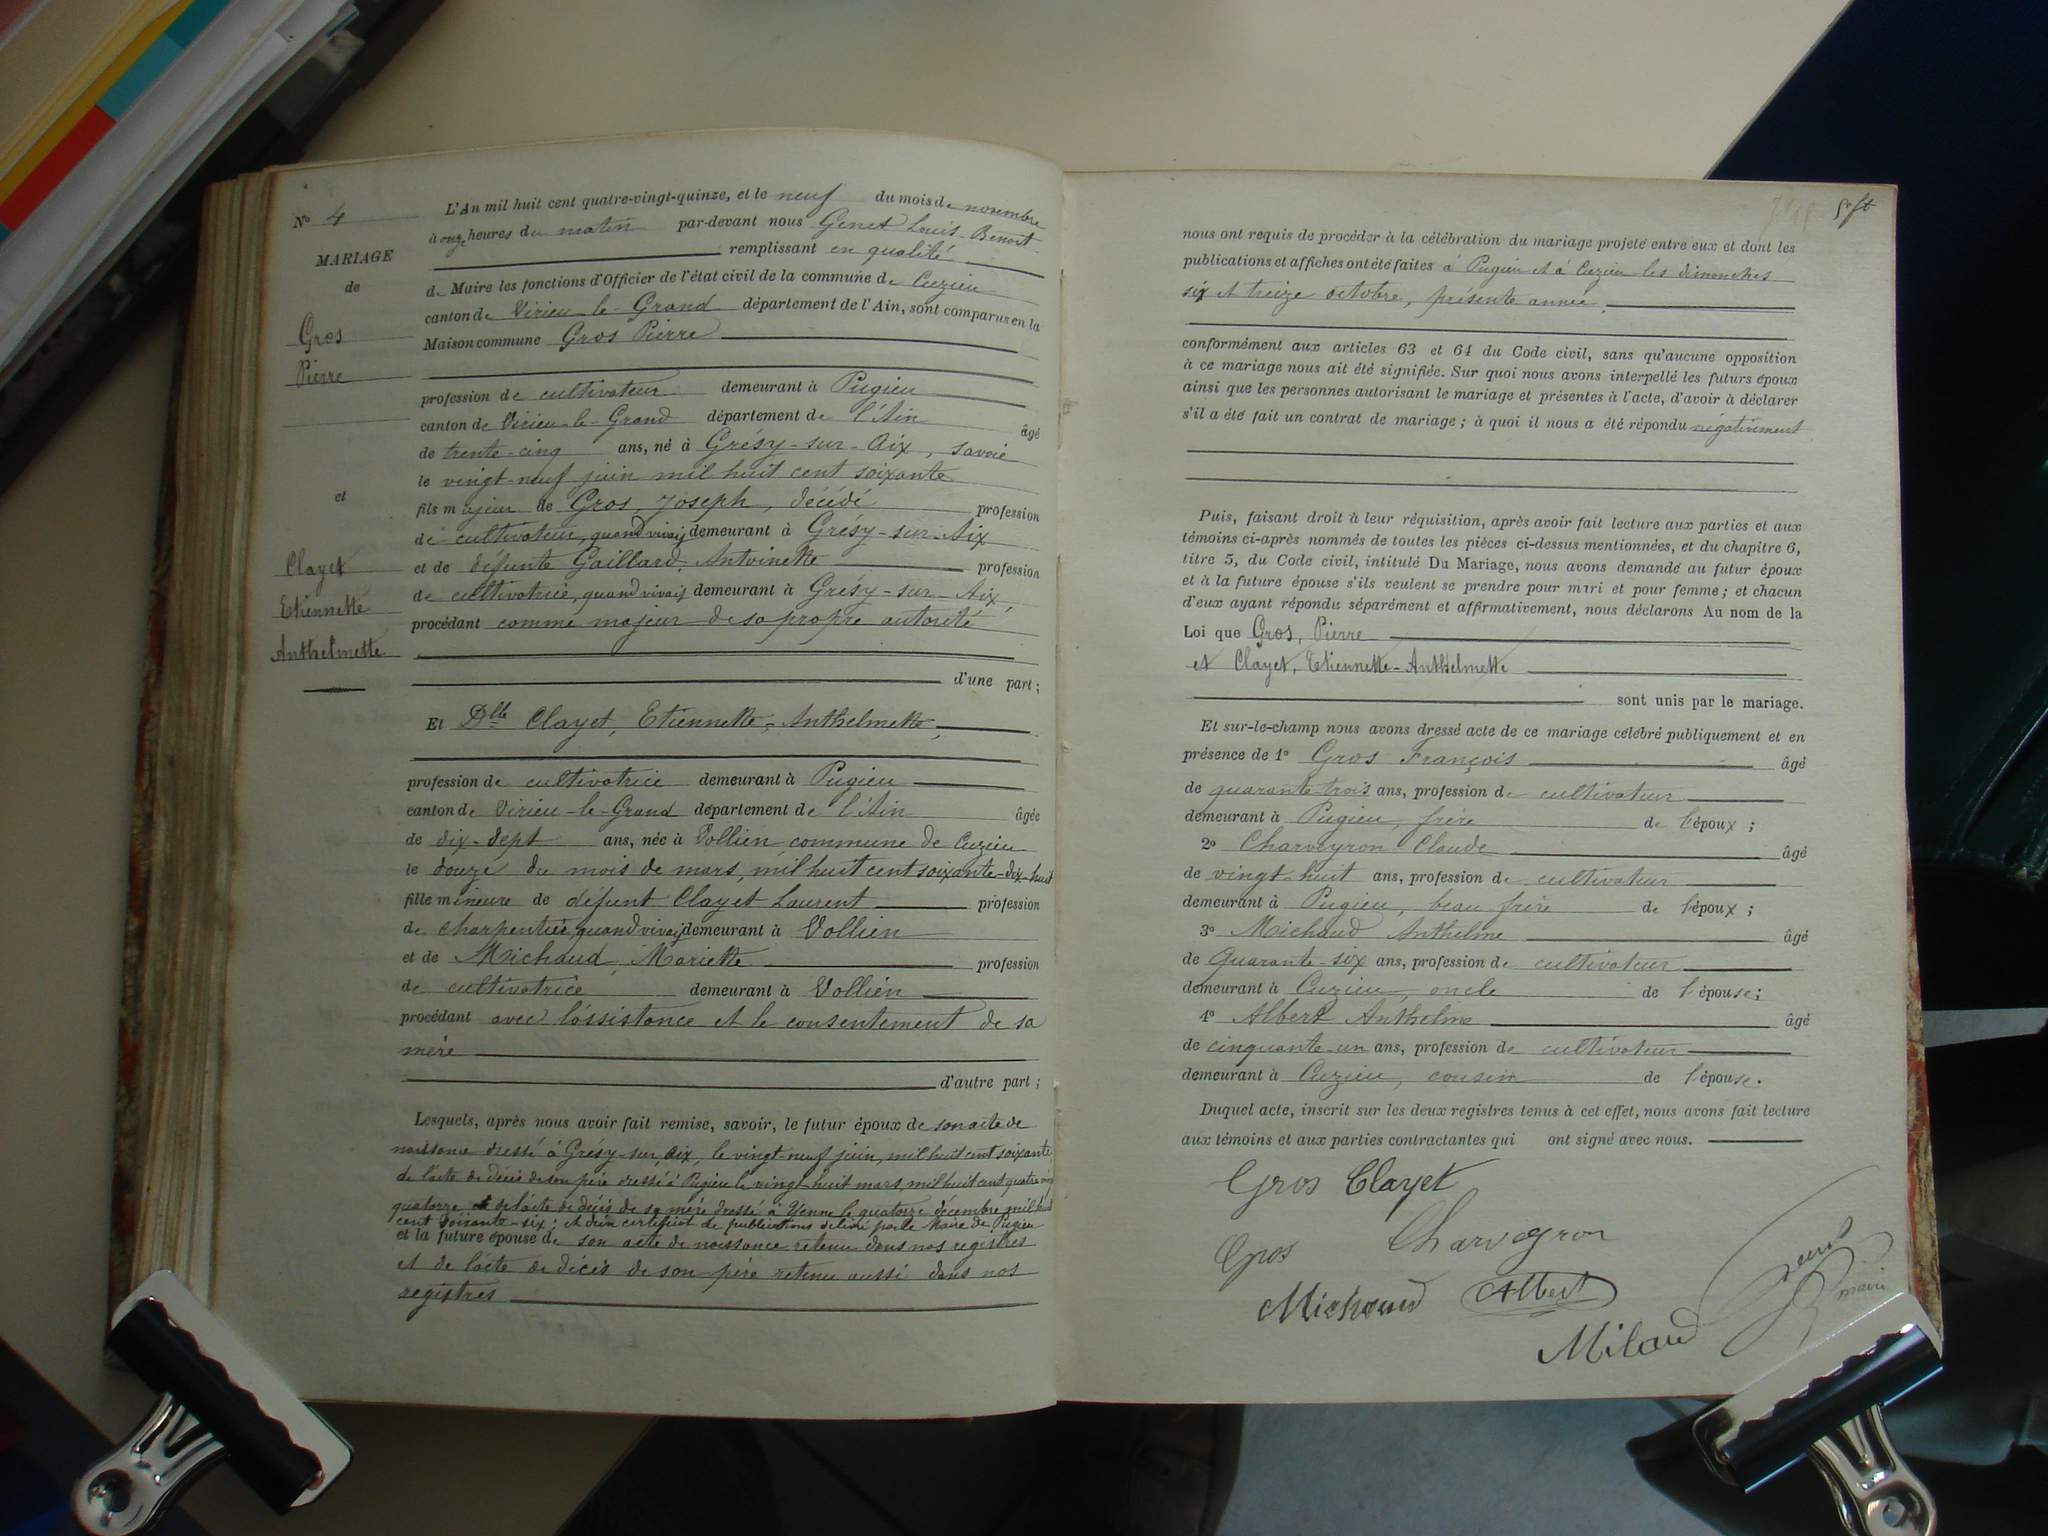 N° 4
MARIAGE
de
Gros
Pierre
et
Clayet
Etiennette
Anthelmette
L'An mil huit cent quatre-vingt-quinze, et le neuf du mois de novembre
à onze heures du matin par-devant nous Genet Louis-Benoit
remplissant en qualité
de Maire les fonctions d'Officier de l'état civil de la commune de Cuzieu
canton de Virieu-le-Grand département de l'Ain, sont comparus en la
Maison commune Gros Pierre
profession de cultivateur demeurant à Pugieu
canton de Virieu-le-Grand département de l'Ain âgé
de trente-cinq ans, né à Grésy-sur-Aix, Savoie
le vingt-neuf juin mil huit cent soixante
fils majeur de Gros, Joseph, décédé profession
de cultivateur, quand vivait demeurant à Grésy-sur-Aix
et de défunte Gaillard, Antoinette profession
de cultivatrice, quand vivait demeurant à Grésy-sur-Aix,
procédant comme majeur de sa propre autorité
d'une part ;
Et Dlle Clayet, Etiennette-Anthelmette,
profession de cultivatrice demeurant à Pugieu
canton de Virieu-le-Grand département de l'Ain âgée
de dix-sept ans, née à Vollien commune de Cuzieu
le douze du mois de mars, mil huit cent soixante-dix-huit
fille mineure de défunt Clayet Laurent profession
de charpentier, quand vivait demeurant à Vollien
et de Michaud, Mariette profession
de cultivatrice demeurant à Vollien
procédant avec l'assistance et le consentement de sa
mère
d'autre part ;
Lesquels, après nous avoir fait remise, savoir, le futur époux de son acte de
naissance dressé à Grésy-sur-Aix, le vingt-neuf juin, mil huit cent soixante,
de l'acte de décès de son père dressé à Pugieu le vingt-huit mars, mil huit cent quatre-vingt
quatorze et de l'acte de décès de sa mère dressé à Yenne le quatorze décembre mil huit
cent soixante-six ; et d'un certificat de publications délivré par le Maire de Pugieu
et la future épouse de son acte de naissance retenu dans nos registres
et de l'acte de décès de son père retenu aussi dans nos
registres
nous ont requis de procéder à la célébration du mariage projeté entre eux et dont les
publications et affiches ont été faites à Pugieu et à Cuzieu les dimanches
six et treize octobre, présente année,
conformément aux articles 63 et 64 du Code civil, sans qu'aucune opposition
à ce mariage nous ait été signifiée. Sur quoi nous avons interpellé les futurs époux
ainsi que les personnes autorisant le mariage et présentes à l'acte, d'avoir à déclarer
s'il a été fait un contrat de mariage ; à quoi il nous a été répondu négativement
Puis, faisant droit à leur réquisition, après avoir fait lecture aux parties et aux
témoins ci-après nommés de toutes les pièces ci-dessus mentionnées, et du chapitre 6,
titre 5, du Code civil, intitulé Du Mariage, nous avons demandé au futur époux
et à la future épouse s'ils veulent se prendre pour mari et pour femme ; et chacun
d'eux ayant répondu séparément et affirmativement, nous déclarons Au nom de la
Loi que Gros, Pierre
et Clayet, Etiennette-Anthelmette
sont unis par le mariage.
Et sur-le-champ nous avons dressé acte de ce mariage célébré publiquement et en
présence de 1° Gros François âgé
de quarante-trois ans, profession de cultivateur
demeurant à Pugieu, frère de l'époux ;
2° Charveyron Claude âgé
de vingt-huit ans, profession de cultivateur
demeurant à Pugieu, beau frère de l'époux ;
3° Michaud Anthelme âgé
de quarante-six ans, profession de cultivateur
demeurant à Cuzieu, oncle de l'épouse ;
4° Albert Anthelme âgé
de cinquante-un ans, profession de cultivateur
demeurant à Cuzieu, cousin de l'épouse.
Duquel acte, inscrit sur les deux registres tenus à cet effet, nous avons fait lecture
aux témoins et aux parties contractantes qui ont signé avec nous.
Gros Clayet
Gros Charveyron
Michaud Albert
Milaud
Genet
maire